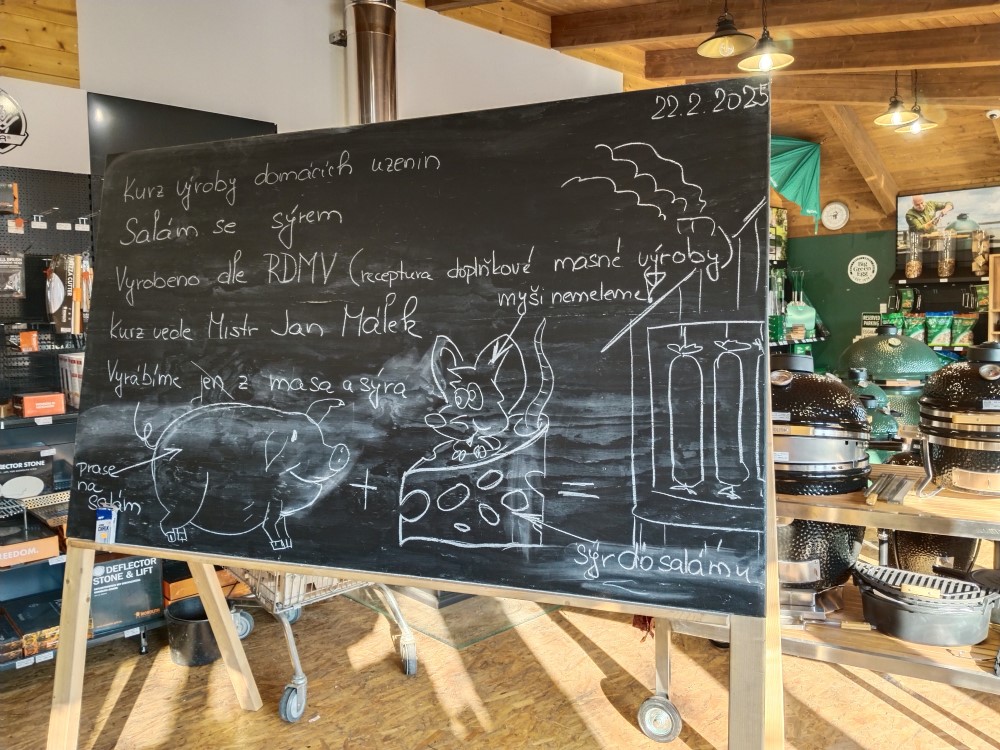 22.2.2025
Kurz výroby domácích uzenin
Salám se sýrem
Vyrobeno dle RDMV (receptura doplňkové masné výroby)
myši nemeleme!
Kurz vede Mistr Jan Málek
Vyrábíme jen z masa a sýra
prase
na
salám
+
=
sýr do salámu
Big
Green
Egg
RESERVED
PARKING
DEFLECTOR STONE
FREEDOM.
DEFLECTOR
STONE & LIFT